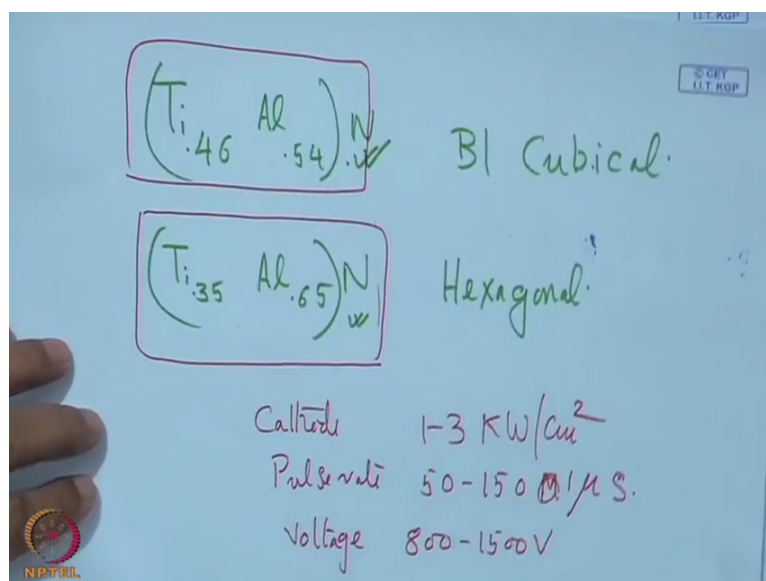 I.I.T. KGP
© CET
I.I.T. KGP
(Ti.46 Al.54)N B1 Cubical.
(Ti.35 Al.65)N Hexagonal.
Cathode 1-3 KW/cm²
Pulse rate 50-150 μS.
Voltage 800-1500V
NPTEL